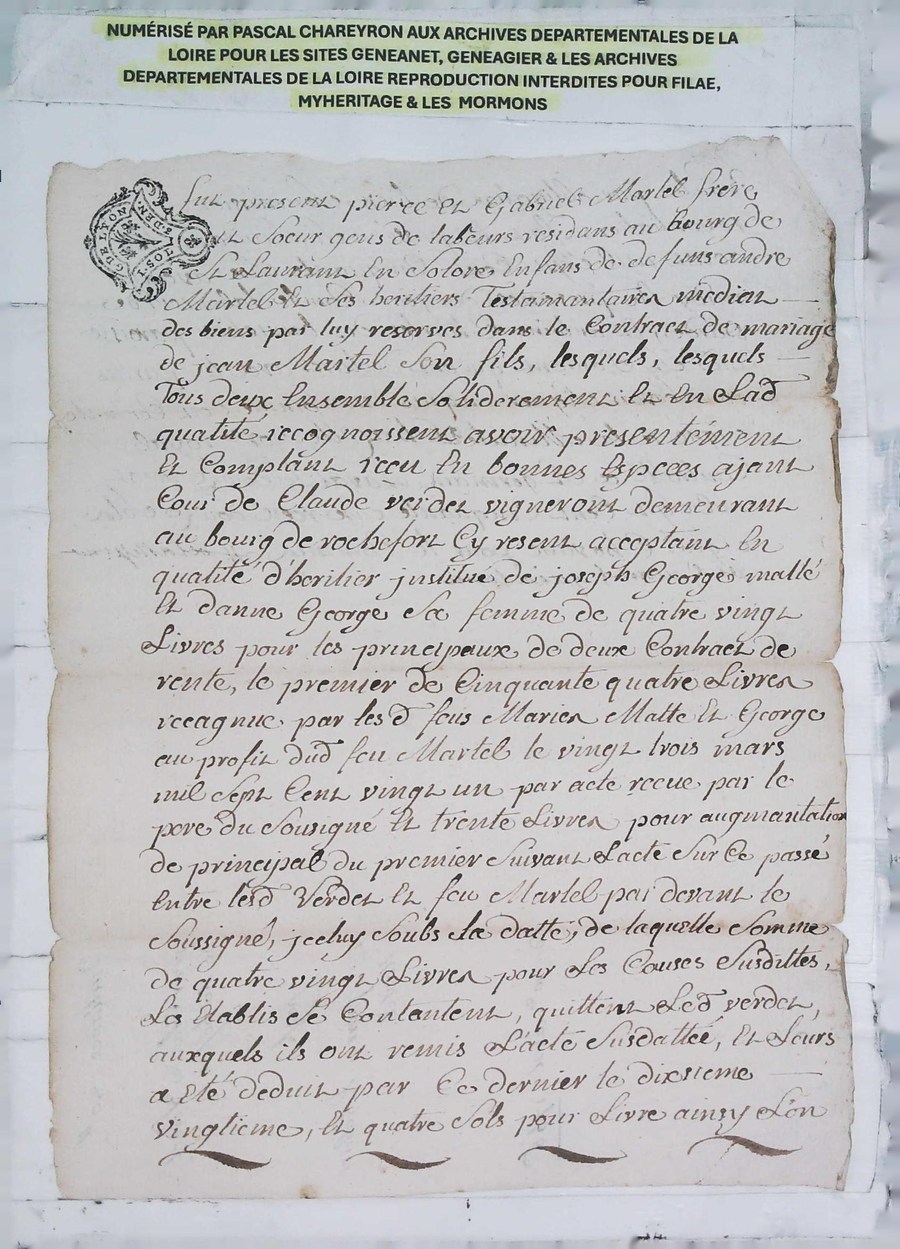 NUMÉRISÉ PAR PASCAL CHAREYRON AUX ARCHIVES DEPARTEMENTALES DE LA
LOIRE POUR LES SITES GENEANET, GENEAGIER & LES ARCHIVES
DEPARTEMENTALES DE LA LOIRE REPRODUCTION INTERDITES POUR FILAE,
MYHERITAGE & LES MORMONS
G DE LYON
2 S. DEN
1. SOL
fut present pierre et Gabriel Martel frere
et Soeur gens de labeurs residans au bourg de
St Laurant En Solore Enfans de defuns andre
Martel Et Ses heritiers Testamantaires median
des biens par luy reserves dans le Contract de mariage
de jean Martel Son fils, lesquels, lesquels
Tous deux Ensemble Soliderement Et En Lad
qualité recognoissent avoir presentement
Et Comptant reçu En bonnes Especes ajant
Cour de Claude verdet vigneront demeurant
au bourg de rochefort Cy resent acceptant En
qualité d'heritier jnstitué de joseph George matté
Et danne George Sa femme de quatre vingt
Livres pour les principaux de deux Contract de
rente, le premier de Cinquante quatre Livres
recagnue par lesd feus Maries Matte Et George
au profit dud feu Martel le vingt trois mars
mil Sept Cent vingt un par acte reçue par le
pere du Sousigné Et trente Livres pour augmantation
de principal du premier Suivant Lacte Sur Ce passé
Entre lesd Verdet Et feu Martel par devant le
Soussigné, jceluy Soubs La datte, de laquelle Somme
de quatre vingt Livres pour Les Causes Susdittes,
Les Etablis Se Contentent, quittent Led verdet,
auxquels ils ont remis L'acte Susdattée, Et Leurs
a été deduit par Ce dernier le dixsieme
vingtieme, Et quatre Sols pour Livre ainsy L'on